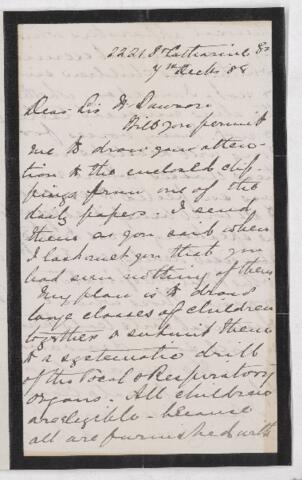 2221 St Catharine St
7th Decbr 88
Dear Sir W Dawson
Will you permit
me to draw your atten-
tion to the enclosed clip-
pings from one of the
daily papers. I send
them as you said when
I last met you that you
had seen nothing of them
My plan is to draw
large classes of children
together & submit them
to a systematic drill
of the Vocal & Respiratory
organs. All children
are eligible - because
all are furnished with